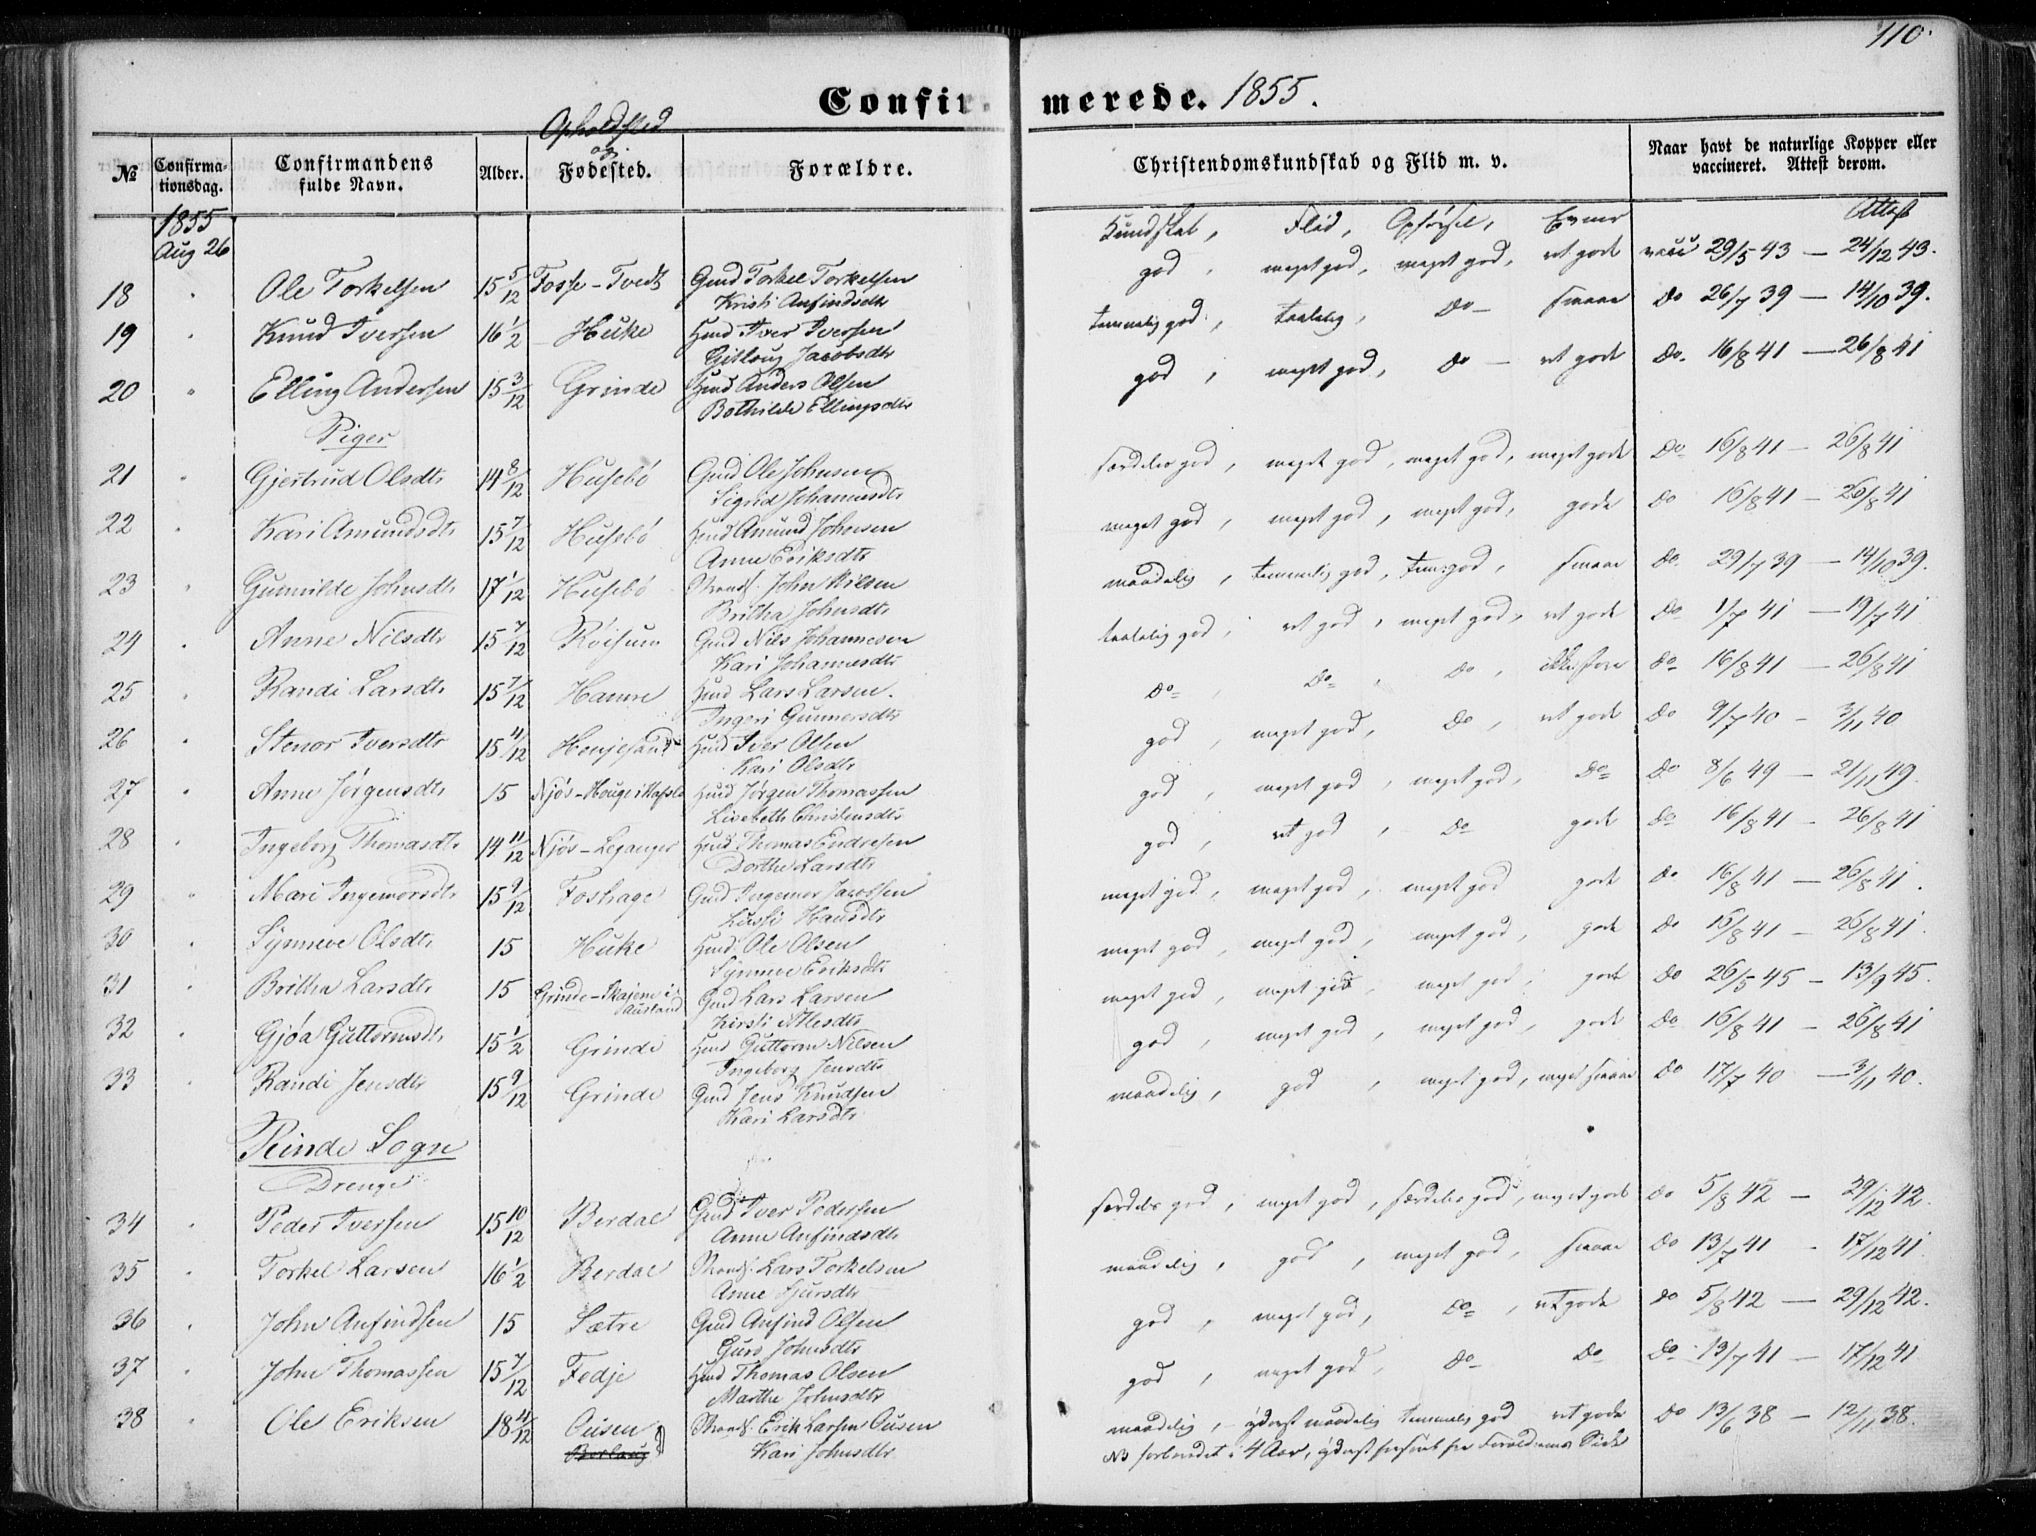 110.
Confirmerede. 1855.
Opholdsted og
№ Confirmationsdag. Confirmandens fulde Navn. Alder. Fødested. Forældre. Christendomskundskab og Flid m. v. Naar havt de naturlige Kopper eller vaccineret. Attest derom.
1855
Aug 26
Kundskab, Flid, Opførsel, Evner Attest
18 " Ole Torkelsen 15 5/12 Fosse - Tvedt Gmd Torkel Torkelsen god, meget god, meget god, ret gode vacc 29/5 43 — 24/12 43.
Kristi Anfindsdtr
19 " Knud Iversen 16 1/2 Huke Hmd Iver Iversen temmelig god, taalelig, do - smaae do 26/7 39 — 14/10 39.
Gitlaug Jacobsdtr
20 " Elling Andersen 15 3/12 Grinde Hmd Anders Olsen god, meget god, do - ret gode do. 16/8 41 — 26/8 41
Bothilde Ellingsdtr
Piger
21 " Gjertrud Olsdtr 14 8/12 Husebö Gmd Ole Johnsen særdeles god, meget god, meget god, meget gode do 16/8 41 — 26/8 41
Sigrid Johannesdtr
22 " Kari Amundsdtr 15 7/12 Husebö Hmd Amund Johnsen meget god, meget god, meget god, gode do 16/8 41 — 26/8 41
Anne Eriksdtr
23 " Gunvilde Johnsdtr 17 1/12 Husebö Strands. John Nilsen maadelig, temmelig god, tem: god, smaae do. 29/7 39 — 14/10 39.
Britha Johnsdtr
24 " Anne Nilsdtr 15 7/12 Röisum Gmd Nils Johannesen taalelig god, ret god, meget god, ret gode do 1/7 41 — 19/7 41
Kari Johannesdtr
25 " Randi Larsdtr 15 7/12 Hamre Hmd Lars Larsen. do, do, do, ikke store do 16/8 41 — 26/8 41
Ingeri Gunnersdtr
26 " Stenor Iversdtr 15 11/12 Henjesand Hmd Iver Olsen god, meget god, do, ret gode do 9/7 40 — 3/11 40
Kari Olsdtr
27 " Anne Jörgensdtr 15 Njös - Houge i Hafslo Hmd Jörgen Thomassen god, meget god, meget god, do do 8/6 49 — 21/11 49.
Lisebeth Christensdtr
28 " Ingeborg Thomasdtr 14 11/12 Njös - Leganger Hmd Thomas Endresen god, ret god, do gode do 16/8 41 — 26/8 41
Dorthe Larsdtr
29 " Mari Ingemorsdtr 15 9/12 Foshage Gmd Ingemor Jacobsen meget god, meget god, meget god gode do 16/8 41 — 26/8 41.
Hansdtr
30 " Synneve Olsdtr 15 Huke Hmd Ole Olsen meget god, meget god, meget god, gode do 16/8 41 — 26/8 41.
Synneve Eriksdtr
31 " Britha Larsdtr 15 Grinde - Skajem i Aurland Gmd Lars Larsen meget god, meget god, meget god, gode do 26/5 45 — 13/9 45.
Kirsti Atlesdtr
32 " Gjöa Guttormsdtr 15 1/2 Grinde Hmd Guttorm Nilsen god, meget god, meget god, gode do 16/8 41 — 26/8 41
Ingeborg Jensdtr
33 " Randi Jensdtr 15 9/12 Grinde Gmd Jens Knudsen maadelig, god, meget god, meget smaae do 17/7 40 — 3/11 40.
Kari Larsdtr
Rinde Sogn
Drenge
34 " Peder Iversen 15 10/12 Berdal Gmd Iver Pedersen særdeles god, meget god, særdeles god, meget gode do 5/8 42 — 29/12 42.
Anne Anfindsdtr
35 " Torkel Larsen 16 1/2 Berdal Strands. Lars Torkelsen maadelig, god, meget god, smaae do 13/7 41 — 17/12 41.
Anne Sjursdtr
36 " John Anfindsen 15 Sætre Gmd Anfind Olsen god, meget god, do, ret gode do 5/8 42 — 29/12 42.
Guro Johnsdtr
37 " John Thomassen 15 7/12 Fedje Hmd Thomas Olsen god, meget god, do do do 13/7 41 — 17/12 41
Marthe Johnsdtr
38 " Ole Eriksen 18 11/12 Ousen Strands. Erik Larsen Ousen maadelig, yderst maadelig temmelig god ret gode do 13/6 38 — 12/11 38.
Kari Johnsdtr NB forberedet i 4 Aar, yderst forsømt fra Forældrenes Side